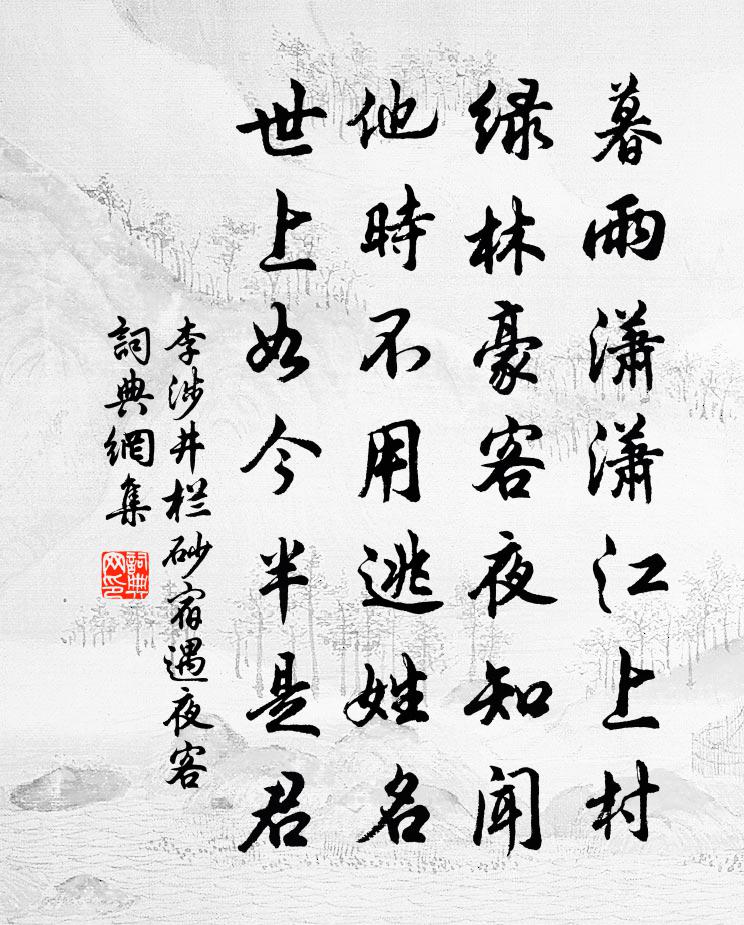 暮雨瀟瀟江上村
綠林豪客夜知聞
他時不用逃姓名
世上如今半是君
李涉井栏砂宿遇夜客
詞典網集
詞典
网印